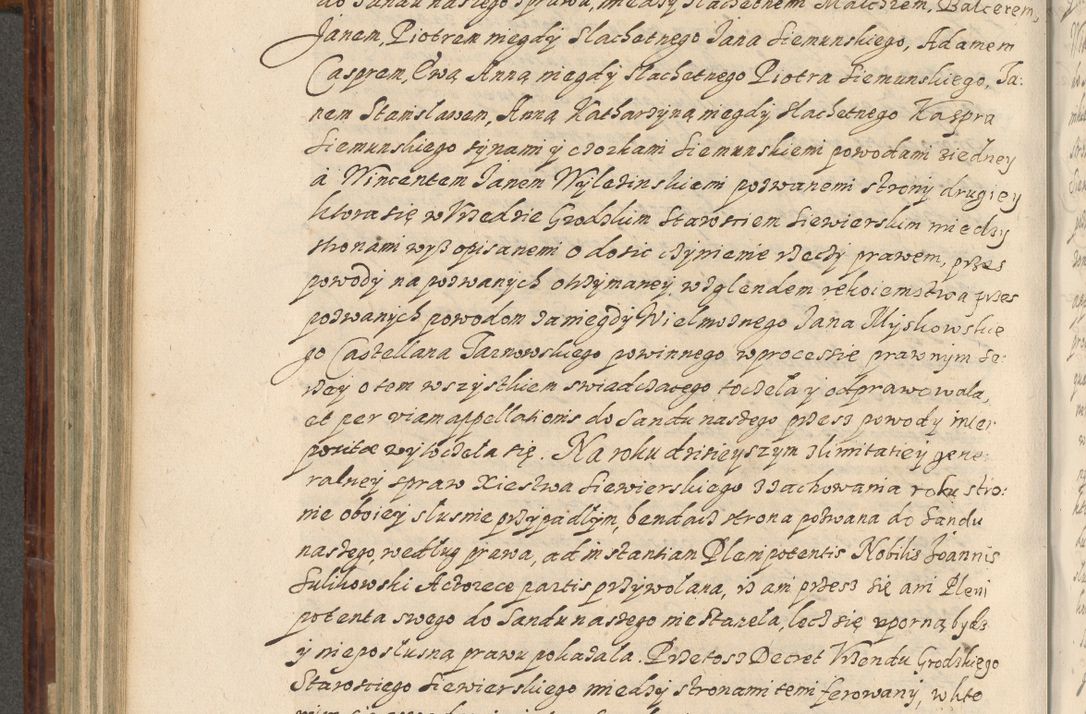 do Sandu naszego sprawa, miedzy slachetnem Malchrem, Balcerem,
Janem, Piotrem niegdy Slachetnego Jana Siemunskiego, Adamem
Casprem, Ewa Anną niegdy slachetnego Piotra Siemunskiego, Ja:
nem Stanislawem, Anną Katharzyną niegdy slachetnego Kaspra
Siemunskiego synami y czorkami Siemunskiemi powodami ziedney
á Wincentem Janem Wylezinskiemi pozwanemi strony drugiey
ktora się w Vrzedzie Grodzkim Starostiem Siewierskim miedzy
stronami wyz opisanemi o dosic czynienie rzeczy prawem, przes
powody na pozwanych otrzymaney, wzglendem rękoiemstwa przes
pozwanych powodom za niegdy Wielmoznego Jana Myskowskie
go Castellana Tarnowskiego powinnego w processie prawnym sę:
rzey o tem wszystkiem swiadczącego toczeła y odprawowala,
et per viam appellationis do Sandu naszego przesz powody inter
positae wytoczela się. Na roku dzisieyszym z limitatiey gene:
ralney spraw Xiestwa Siewierskiego z zachowania roku stro:
nie oboiey slusnie przypadłym, bendącz strona pozwana do Sandu
naszego, według prawa, ad instantian Plenipotentis Nobilis Joannis
Sulikowski Actorece partis przywolana, iz ani przesz się ani Pleni
potenta swego do Sandu naszego nie stazela, lecz się vporną, bydz
y nieposlusną prawu pokazala. Przetosz Decret Vrzendu Grodzkiego
Starostiego Siewierskiego miedzy stronami temi ferowany, w kto